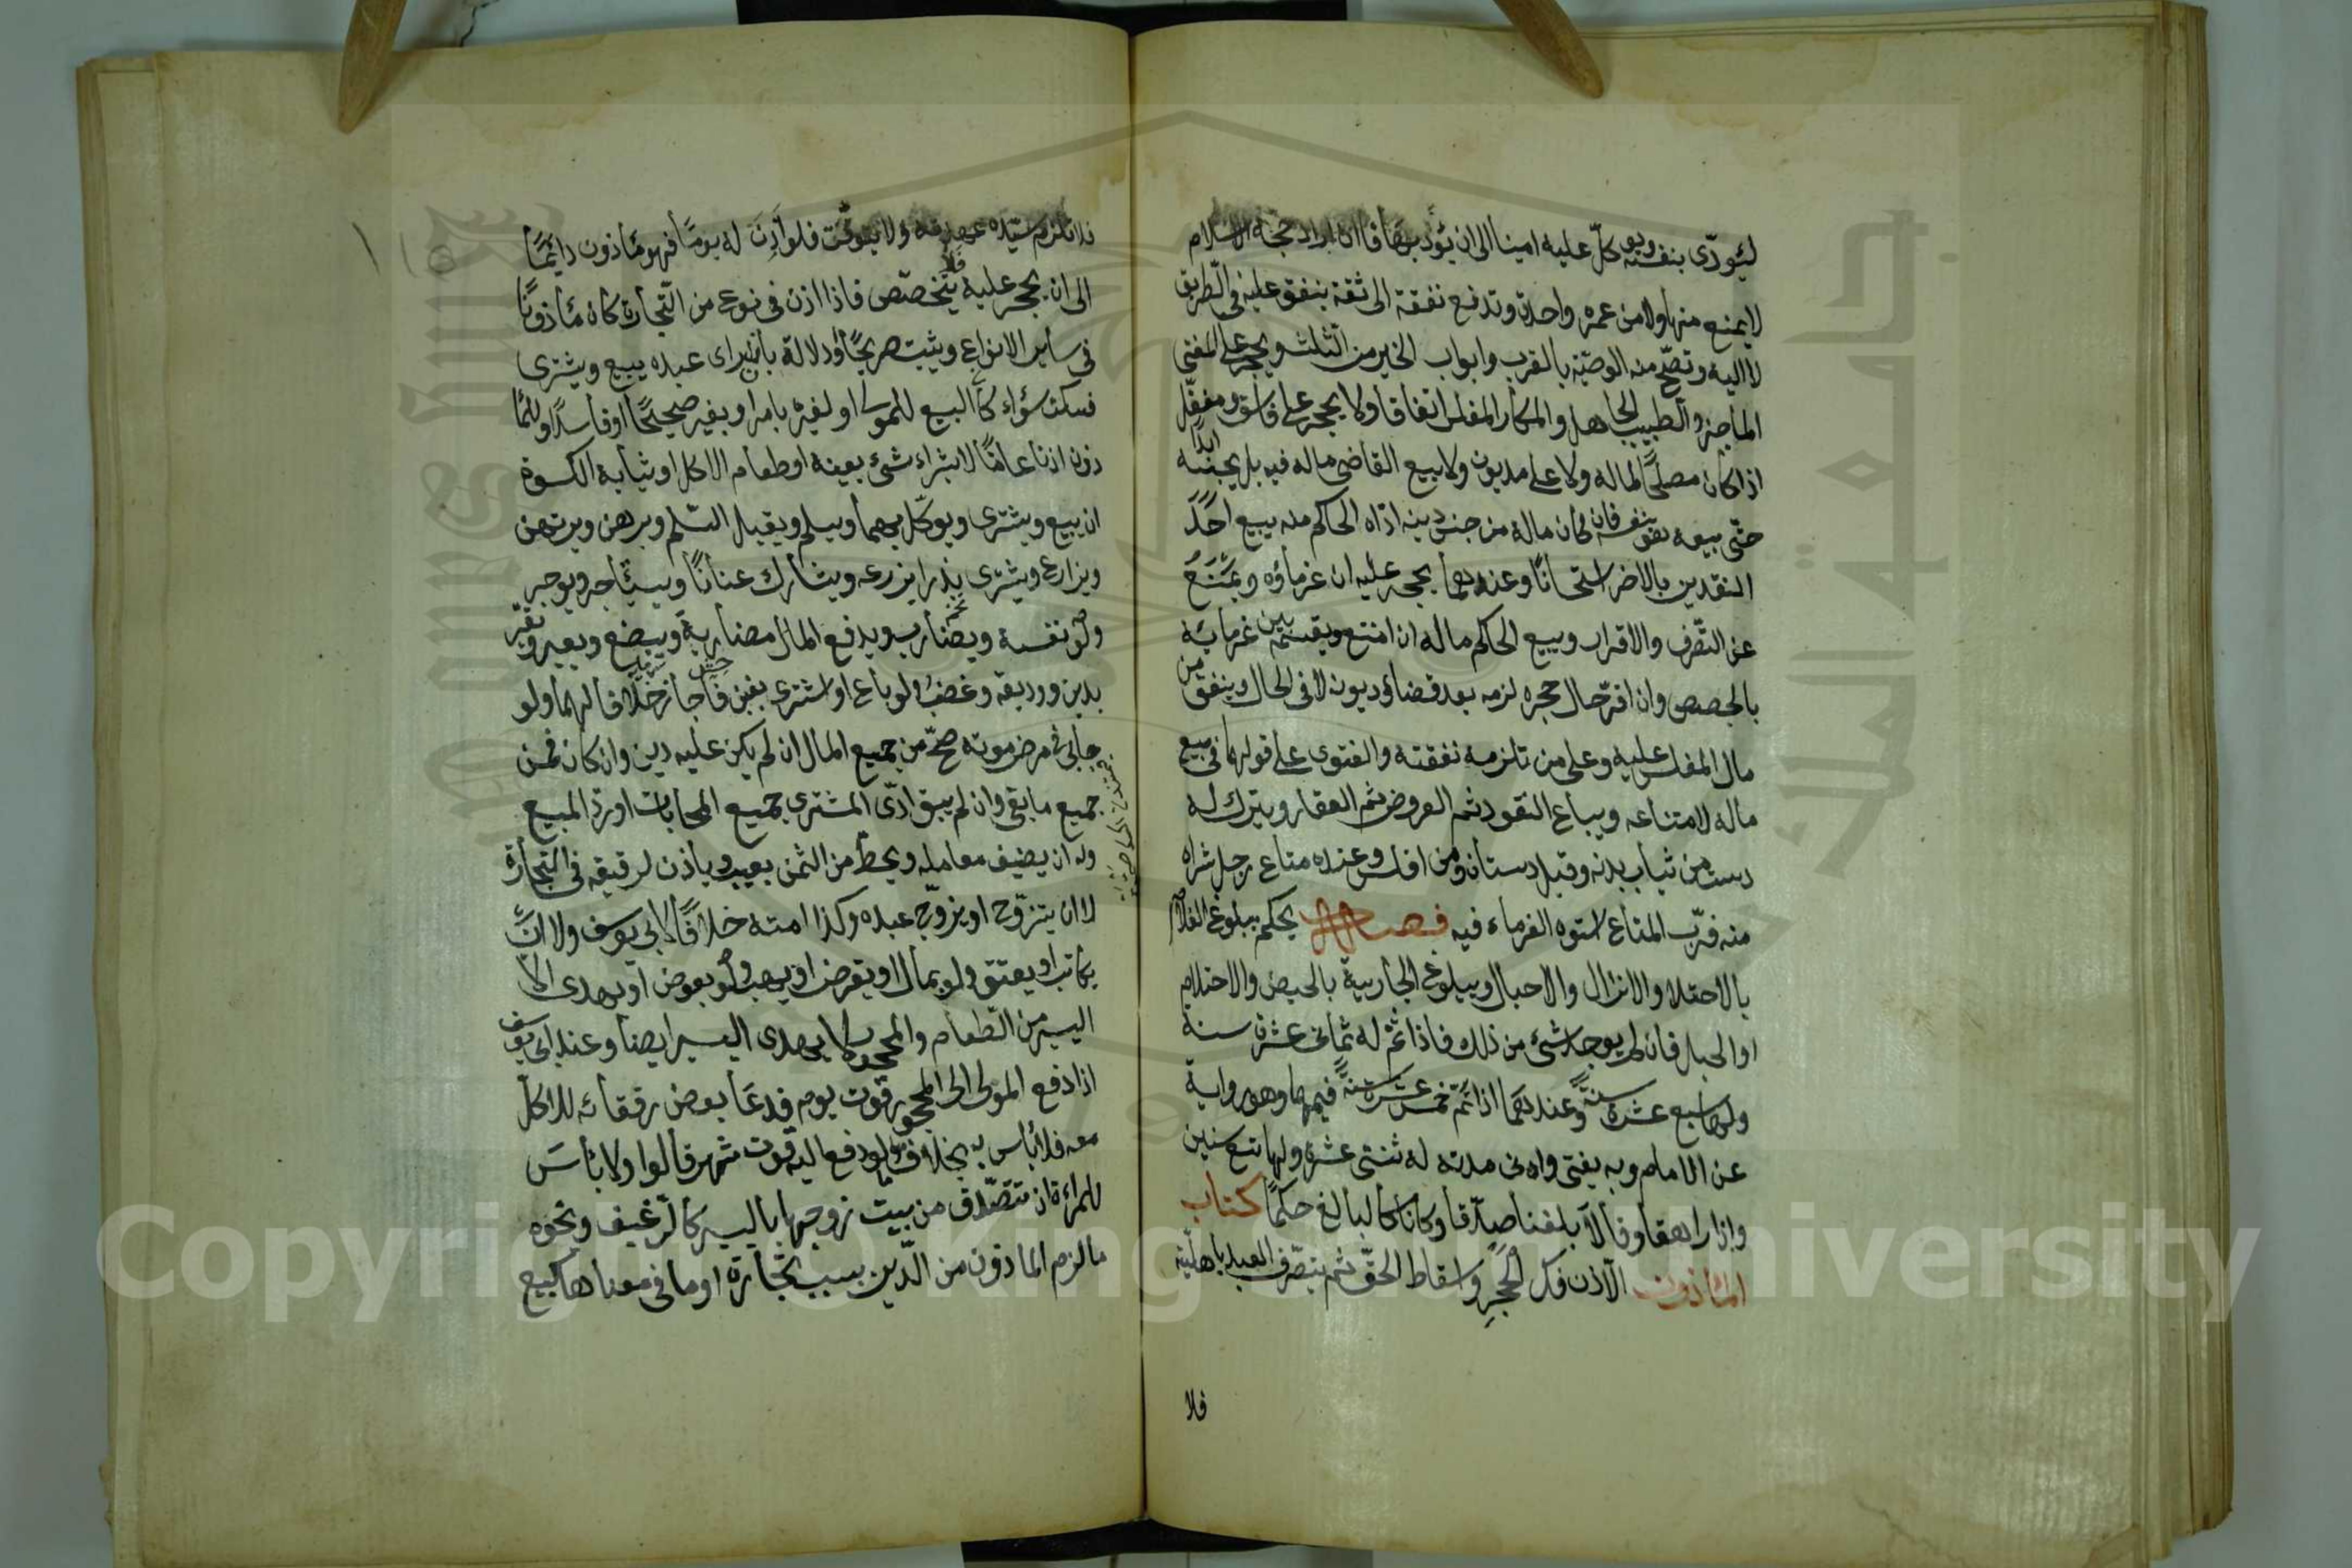 ليؤدى بنفسه ويوكل عليه امينا الى ان يؤديها فان اراد حجة الاسلام
لا يمنع منها ولا من عمرة واحدة وتدفع نفقة الى ثقة ينفق عليه فى الطريق
لا اليه وتصح منه الوصية بالقرب وابواب الخير من الثلث ويحجر على المفتى
الماجن والطبيب الجاهل والمكار المفلس اتفاقا ولا يحجر على فاسق ومغفل
اذا كان مصلحا لماله ولا على مديون ولا يبيع القاضى ماله فيه بل يحبسه ابدا
حتى يبيعه هو بنفسه فان كان ماله من جنس دينه اداه الحاكم منه يبيع احد
النقدين بالاخر استحسانا وعندهما يحجر عليه ان غرماؤه ويمنع
عن التصرف والاقرار ويبيع الحاكم ماله ان امتنع ويقسمه بين غرمائه
بالحصص وان اقر حال حجره لزمه بعد قضاء ديونه لا فى الحال وينفق من
مال المفلس عليه وعلى من تلزمه نفقته والفتوى على قولهما فى بيع
ماله لامتناعه ويباع النقود ثم العروض ثم العقار ويترك له
دست من ثياب بدنه وقيل دستان ومن افلس وعنده متاع رجل شراه
منه فرب المتاع استوه الغرماء فيه فصل يحكم ببلوغ الغلام
بالاحتلام والانزال والاحبال وببلوغ الجارية بالحيض والاحتلام
او الحبل فان لم يوجد شئ من ذلك فاذا تم له ثمانى عشرة سنة
ولها سبع عشرة سنة وعندهما اذا تم خمس عشرة سنة فيهما وهو رواية
عن الامام وبه يفتى وادنى مدته له ثنتى عشرة ولها تسع سنين
واذا راهقا وقالا بلغنا صدقا وكانا كالبالغ حكما كتاب
الماذون الاذن فك الحجر واسقاط الحق ثم يتصرف العبد باهليته
فلا
فلا تلزم سيده عهدته ولا يتوقت فلو اذن له يوما فهو مأذون دائما
الى ان يحجر عليه فلا يتخصص فاذا اذن فى نوع من التجارة كان مأذونا
فى سائر الانواع ويثبت صريحا ودلالة بان راى عبده يبيع ويشترى
فسكت سواء كان البيع للمولى او لغيره بامره او بغيره صحيحا او فاسدا وللمأ
ذون اذنا عاما لا بشراء شئ بعينه او طعام الاكل او ثياب الكسوة
ان يبيع ويشترى ويوكل بهما ويسلم ويقبل السلم ويرهن ويرتهن
ويزارع ويشترى بذرا يزرعه ويشارك عنانا ويستأجر ويوجر
ولو نفسه ويضارب ويدفع المال مضاربة ويبضع ويعير ويقر
بدين ووديعة وغصب ولو باع او اشترى بغبن فاحش جاز خلافا لهما ولو
حابى فى مرض موته صح من جميع المال ان لم يكن عليه دين وان كان فمن
جميع ما بقى وان لم يبق ادى المشترى جميع المحابات او رد المبيع
وله ان يضيف معامله ويحط من الثمن بعيب ويأذن لرقيقه فى التجارة
لا ان يتزوج او يزوج عبده وكذا امته خلافا لابى يوسف ولا ان
يكاتب او يعتق ولو بمال او يقرض او يهب ولو بعوض او يهدى الا
اليسير من الطعام والمحجور لا يهدى اليسير ايضا وعند ابى يوسف
اذا دفع المولى الى المحجور قوت يومه فدعا بعض رفقائه للاكل
معه فلا بأس به بخلاف ما لو دفع اليه قوت شهر قالوا ولا بأس
للمراءة ان تتصدق من بيت زوجها باليسير كالرغيف ونحوه
ما لزم الماذون من الدين بسبب تجارة او ما فى معناها كبيع
Copyright © King Saud University